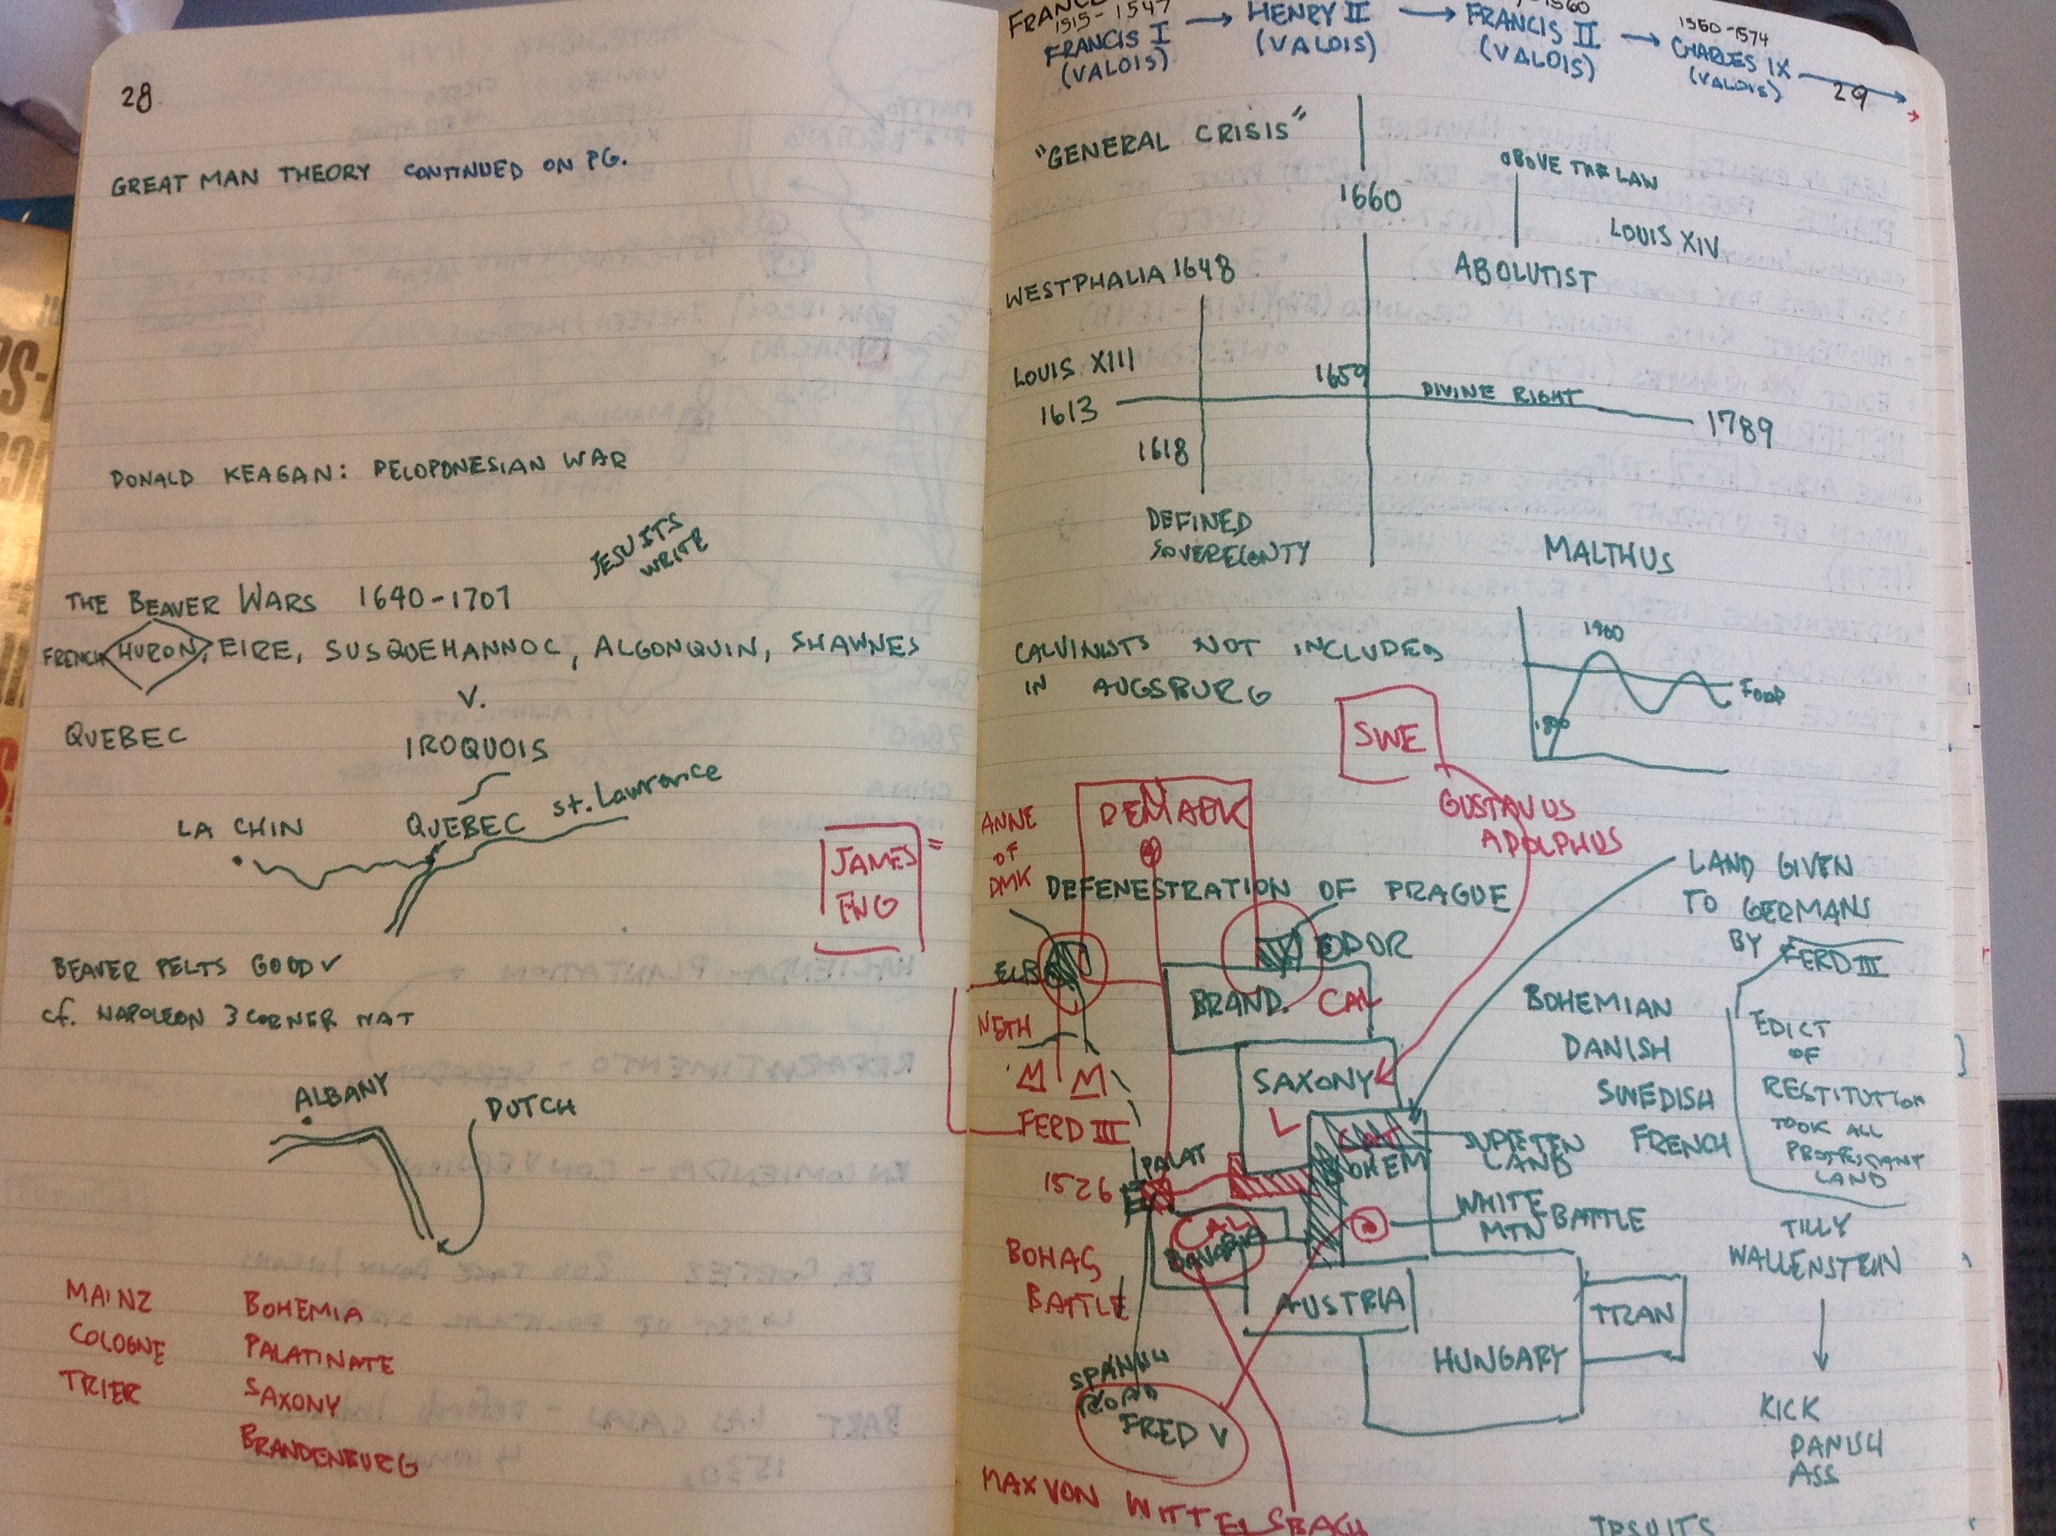 28
GREAT MAN THEORY CONTINUED ON PG.
DONALD KEAGAN: PELOPONESIAN WAR
JESUITS
WRITE
THE BEAVER WARS 1640-1701
FRENCH HURON, EIRE, SUSQUEHANNOC, ALGONQUIN, SHAWNES
V.
QUEBEC
IROQUOIS
LA CHIN
QUEBEC
st. Lawrence
BEAVER PELTS GOOD
cf. NAPOLEON 3 CORNER HAT
ALBANY
DUTCH
MAINZ
COLOGNE
TRIER
BOHEMIA
PALATINATE
SAXONY
BRANDENBURG
JAMES =
ENG
1515-1547
FRANCIS I
(VALOIS)
HENRY II
(VALOIS)
FRANCIS II
(VALOIS)
1560-1574
CHARLES IX
(VALOIS)
29
"GENERAL CRISIS"
1660
ABOVE THE LAW
LOUIS XIV
ABOLUTIST
WESTPHALIA 1648
LOUIS XIII
1613
1659
DIVINE RIGHT
1789
1618
DEFINED
SOVEREIGNTY
MALTHUS
1900
FOOD
1800
CALVINISTS NOT INCLUDED
IN AUGSBURG
SWE
GUSTAVUS
ADOLPHUS
DEMARK
ANNE
OF
DMK
DEFENESTRATION OF PRAGUE
LAND GIVEN
TO GERMANS
BY FERD III
ELB
ODOR
BRAND.
CAL
NETH
SAXONY
L
FERD III
1526
PALAT
CAT
BOHEM
LAND
BOHEMIAN
DANISH
SWEDISH
FRENCH
EDICT
OF
RESTITUTION
TOOK ALL
PROTESTANT
LAND
WHITE
MTN BATTLE
CAL
BAVARIA
BOHAC
BATTLE
AUSTRIA
HUNGARY
TRAN
TILLY
WALLENSTEIN
KICK
DANISH
ASS
SPANISH
ROAD
FRED V
MAX VON WITTELSBACH
JESUITS